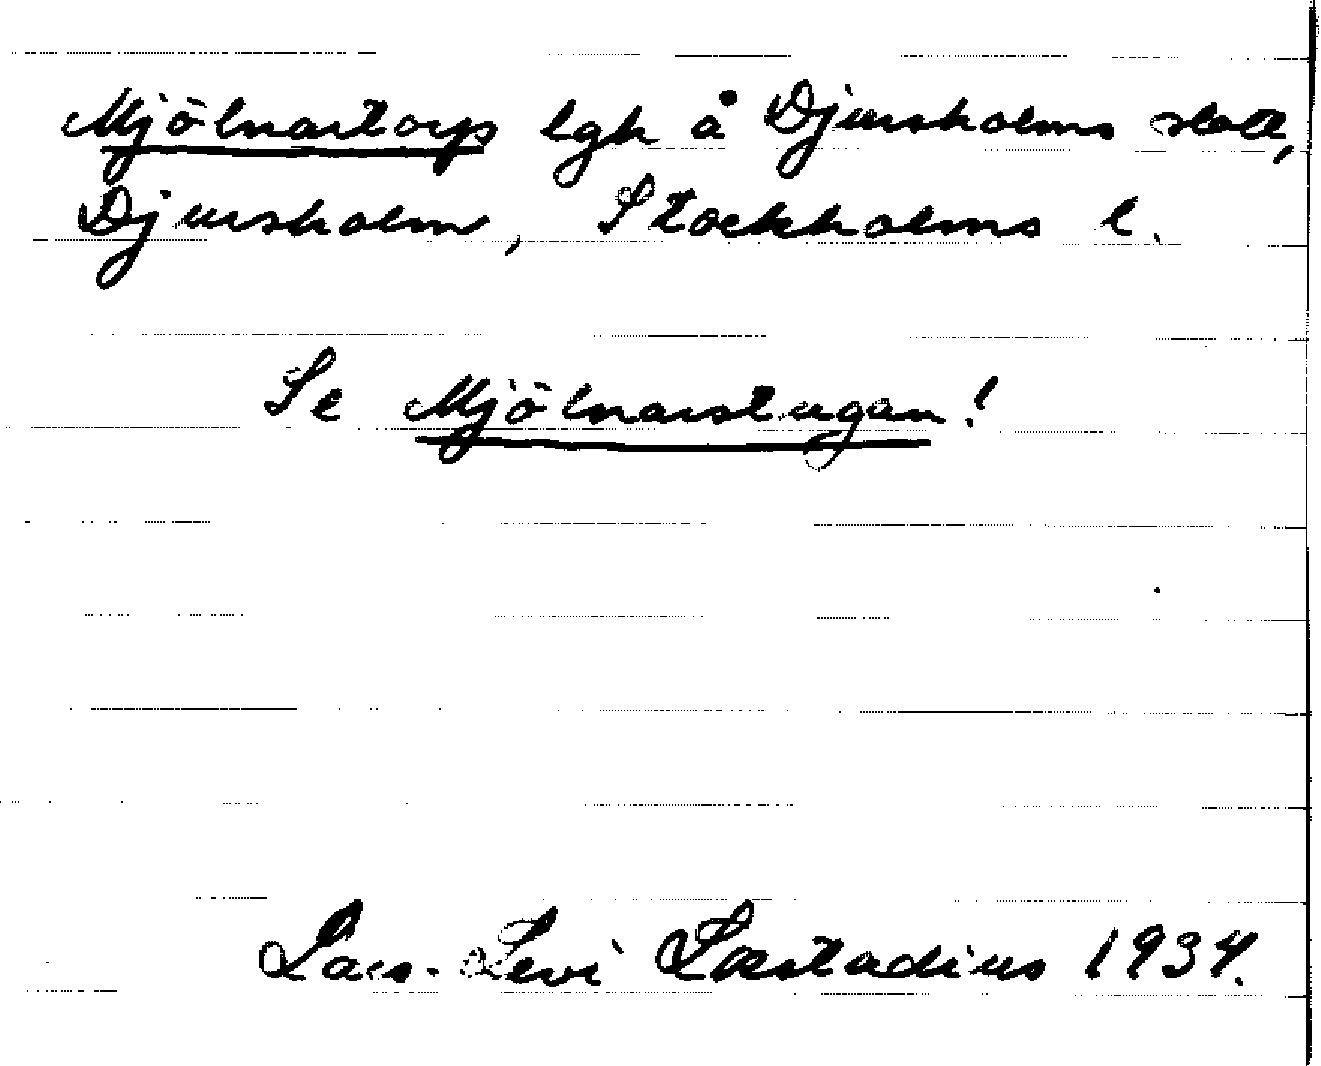 Mjölnartorp lgh å Djursholms slott,
Djursholm, Stockholms l.
Se Mjölnarstugan!
Lars-Levi Læstadius 1934.